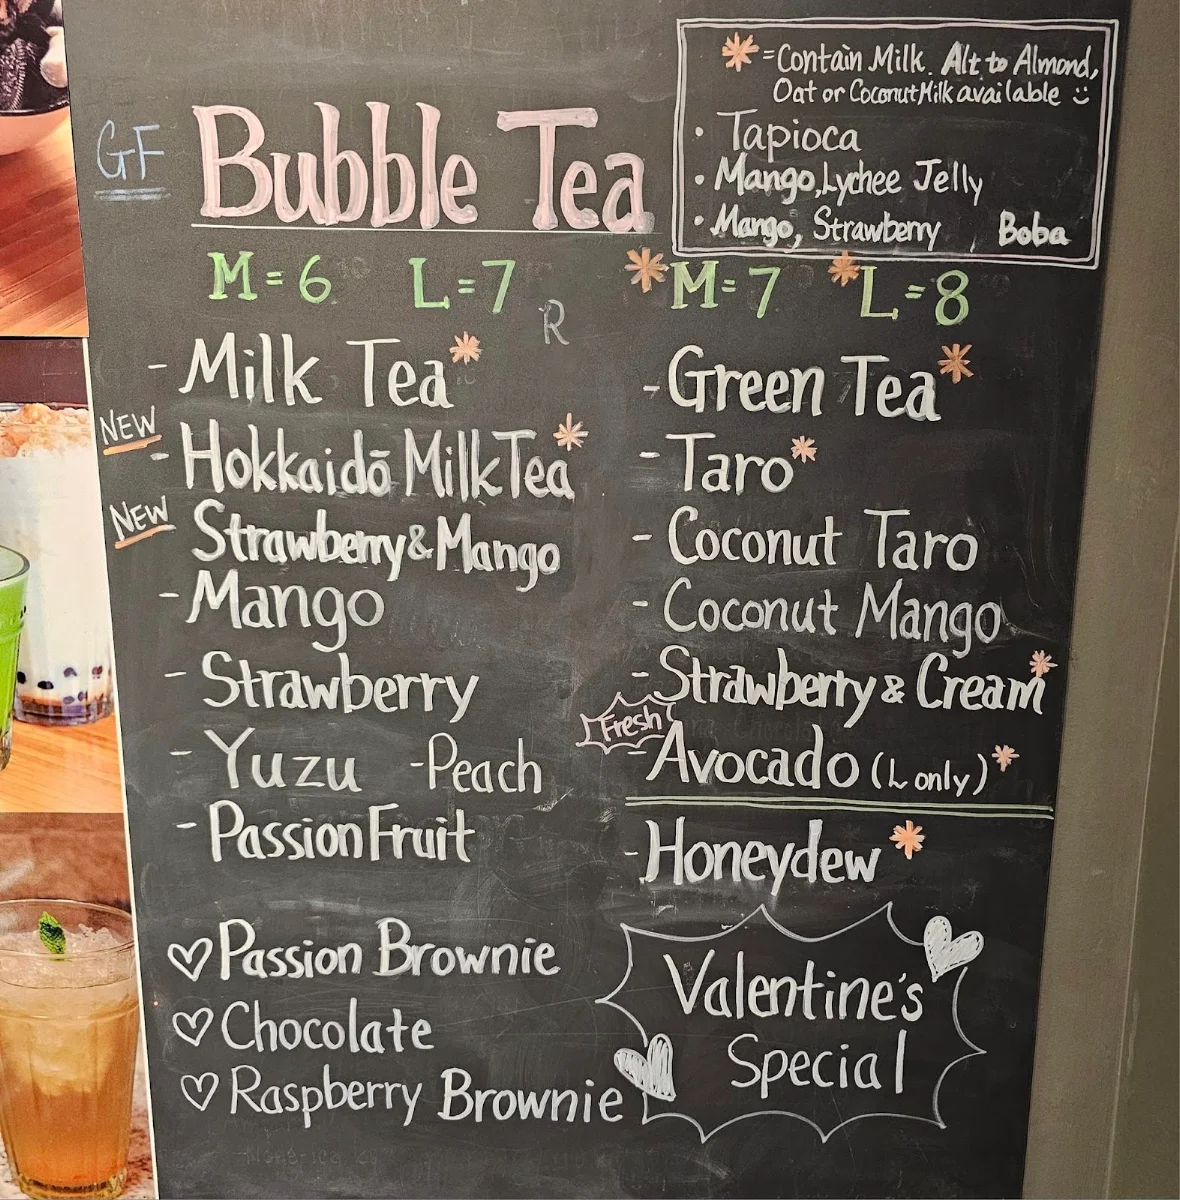 * = Contain Milk. Alt to Almond,
Oat or Coconut Milk available
• Tapioca
• Mango, Lychee Jelly
• Mango, Strawberry Boba
GF
Bubble Tea
M=6 L=7 *M=7 *L=8
R
- Milk Tea*
NEW
- Hokkaidō Milk Tea*
NEW
Strawberry & Mango
- Mango
- Strawberry
- Yuzu - Peach
- Passion Fruit
- Green Tea*
- Taro*
- Coconut Taro
- Coconut Mango
- Strawberry & Cream*
Fresh
- Avocado (L only)*
- Honeydew*
♡ Passion Brownie
♡ Chocolate
♡ Raspberry Brownie
Valentine's
Special